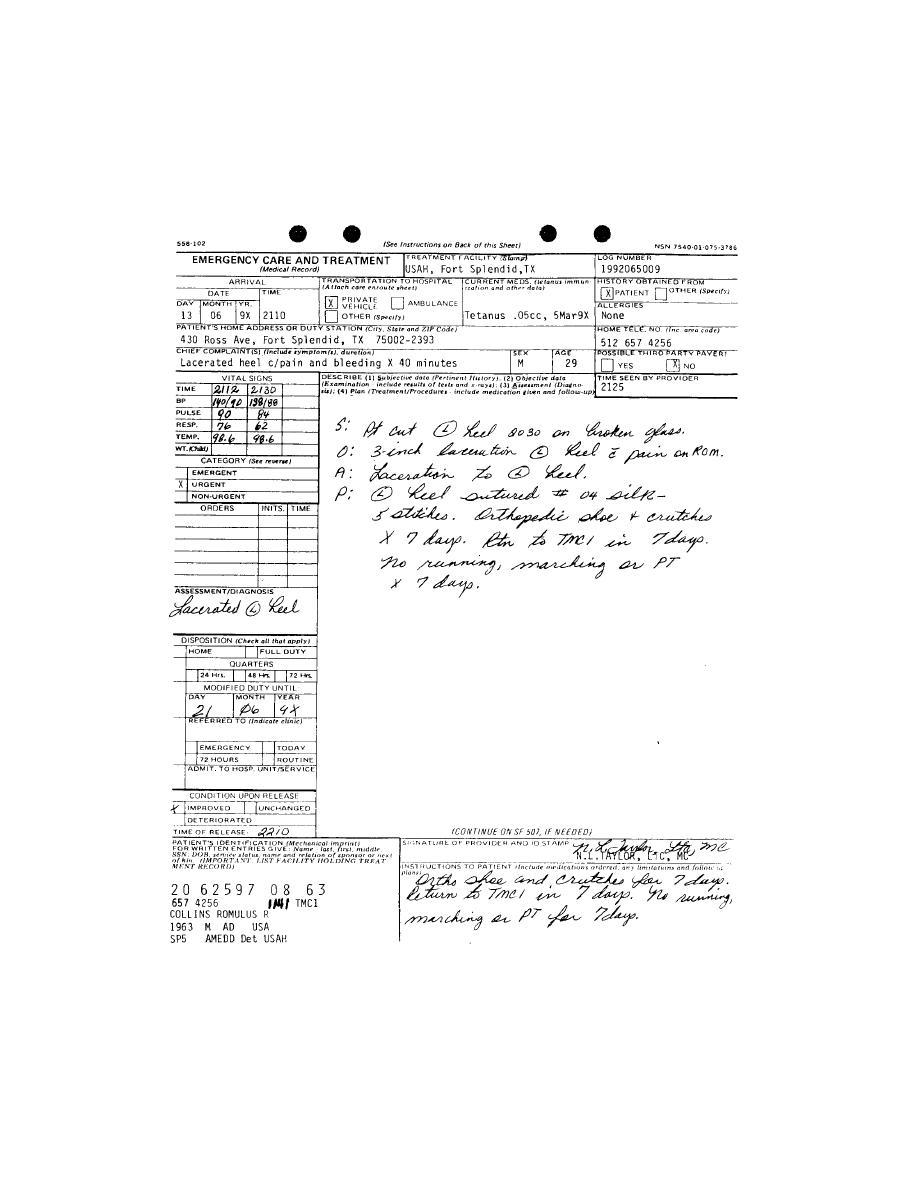 558-102
(See Instructions on Back of this Sheet)
NSN 7540-01-075-3786
EMERGENCY CARE AND TREATMENT
(Medical Record)
TREATMENT FACILITY (Stamp)
USAH, Fort Splendid,TX
LOG NUMBER
1992065009
ARRIVAL
DATE TIME
DAY MONTH YR.
13 06 9X 2110
TRANSPORTATION TO HOSPITAL
(Attach care enroute sheet)
X PRIVATE VEHICLE AMBULANCE
OTHER (Specify)
CURRENT MEDS. (tetanus immun
ization and other data)
Tetanus .05cc, 5Mar9X
HISTORY OBTAINED FROM
X PATIENT OTHER (Specify)
ALLERGIES
None
PATIENT'S HOME ADDRESS OR DUTY STATION (City, State and ZIP Code)
430 Ross Ave, Fort Splendid, TX 75002-2393
HOME TELE. NO. (Inc. area code)
512 657 4256
CHIEF COMPLAINT(S) (Include symptom(s), duration)
Lacerated heel c/pain and bleeding X 40 minutes
SEX
M
AGE
29
POSSIBLE THIRD PARTY PAYER?
YES X NO
VITAL SIGNS
TIME 2112 2130
BP 140/90 138/88
PULSE 90 84
RESP. 76 62
TEMP. 98.6 98.6
WT.(Child)
DESCRIBE (1) Subjective data (Pertinent History); (2) Objective data
(Examination - include results of tests and x-rays); (3) Assessment (Diagno-
sis); (4) Plan (Treatment/Procedures - include medication given and follow-up)
TIME SEEN BY PROVIDER
2125
CATEGORY (See reverse)
EMERGENT
X URGENT
NON-URGENT
ORDERS INITS. TIME
S: Pt cut Ⓛ heel 2030 on broken glass.
O: 3-inch laceration Ⓛ heel c̄ pain on ROM.
A: Laceration to Ⓛ heel.
P: Ⓛ heel sutured # 04 silk-
5 stitches. Orthopedic shoe + crutches
X 7 days. Rtn to TMC1 in 7 days.
No running, marching or PT
x 7 days.
ASSESSMENT/DIAGNOSIS
Lacerated Ⓛ heel
DISPOSITION (Check all that apply)
HOME FULL DUTY
QUARTERS
24 Hrs. 48 Hrs. 72 Hrs.
MODIFIED DUTY UNTIL:
DAY MONTH YEAR
21 06 9X
REFERRED TO (Indicate clinic)
EMERGENCY TODAY
72 HOURS ROUTINE
ADMIT. TO HOSP. UNIT/SERVICE
CONDITION UPON RELEASE
X IMPROVED UNCHANGED
DETERIORATED
TIME OF RELEASE: 2210
(CONTINUE ON SF 507, IF NEEDED)
PATIENT'S IDENTIFICATION (Mechanical imprint)
FOR WRITTEN ENTRIES GIVE: Name - last, first, middle,
SSN; DOB, service status, name and relation of sponsor or next
of kin. (IMPORTANT: LIST FACILITY HOLDING TREAT
MENT RECORD)
20 62597 08 63
657 4256 TMC1
COLLINS ROMULUS R
1963 M AD USA
SP5 AMEDD Det USAH
SIGNATURE OF PROVIDER AND ID STAMP
N.L. Taylor, MC
N.L.TAYLOR, LTC, MC
INSTRUCTIONS TO PATIENT (Include medications ordered, any limitations and follow-up
plans)
Ortho shoe and crutches for 7 days.
Return to TMC1 in 7 days. No running,
marching or PT for 7 days.